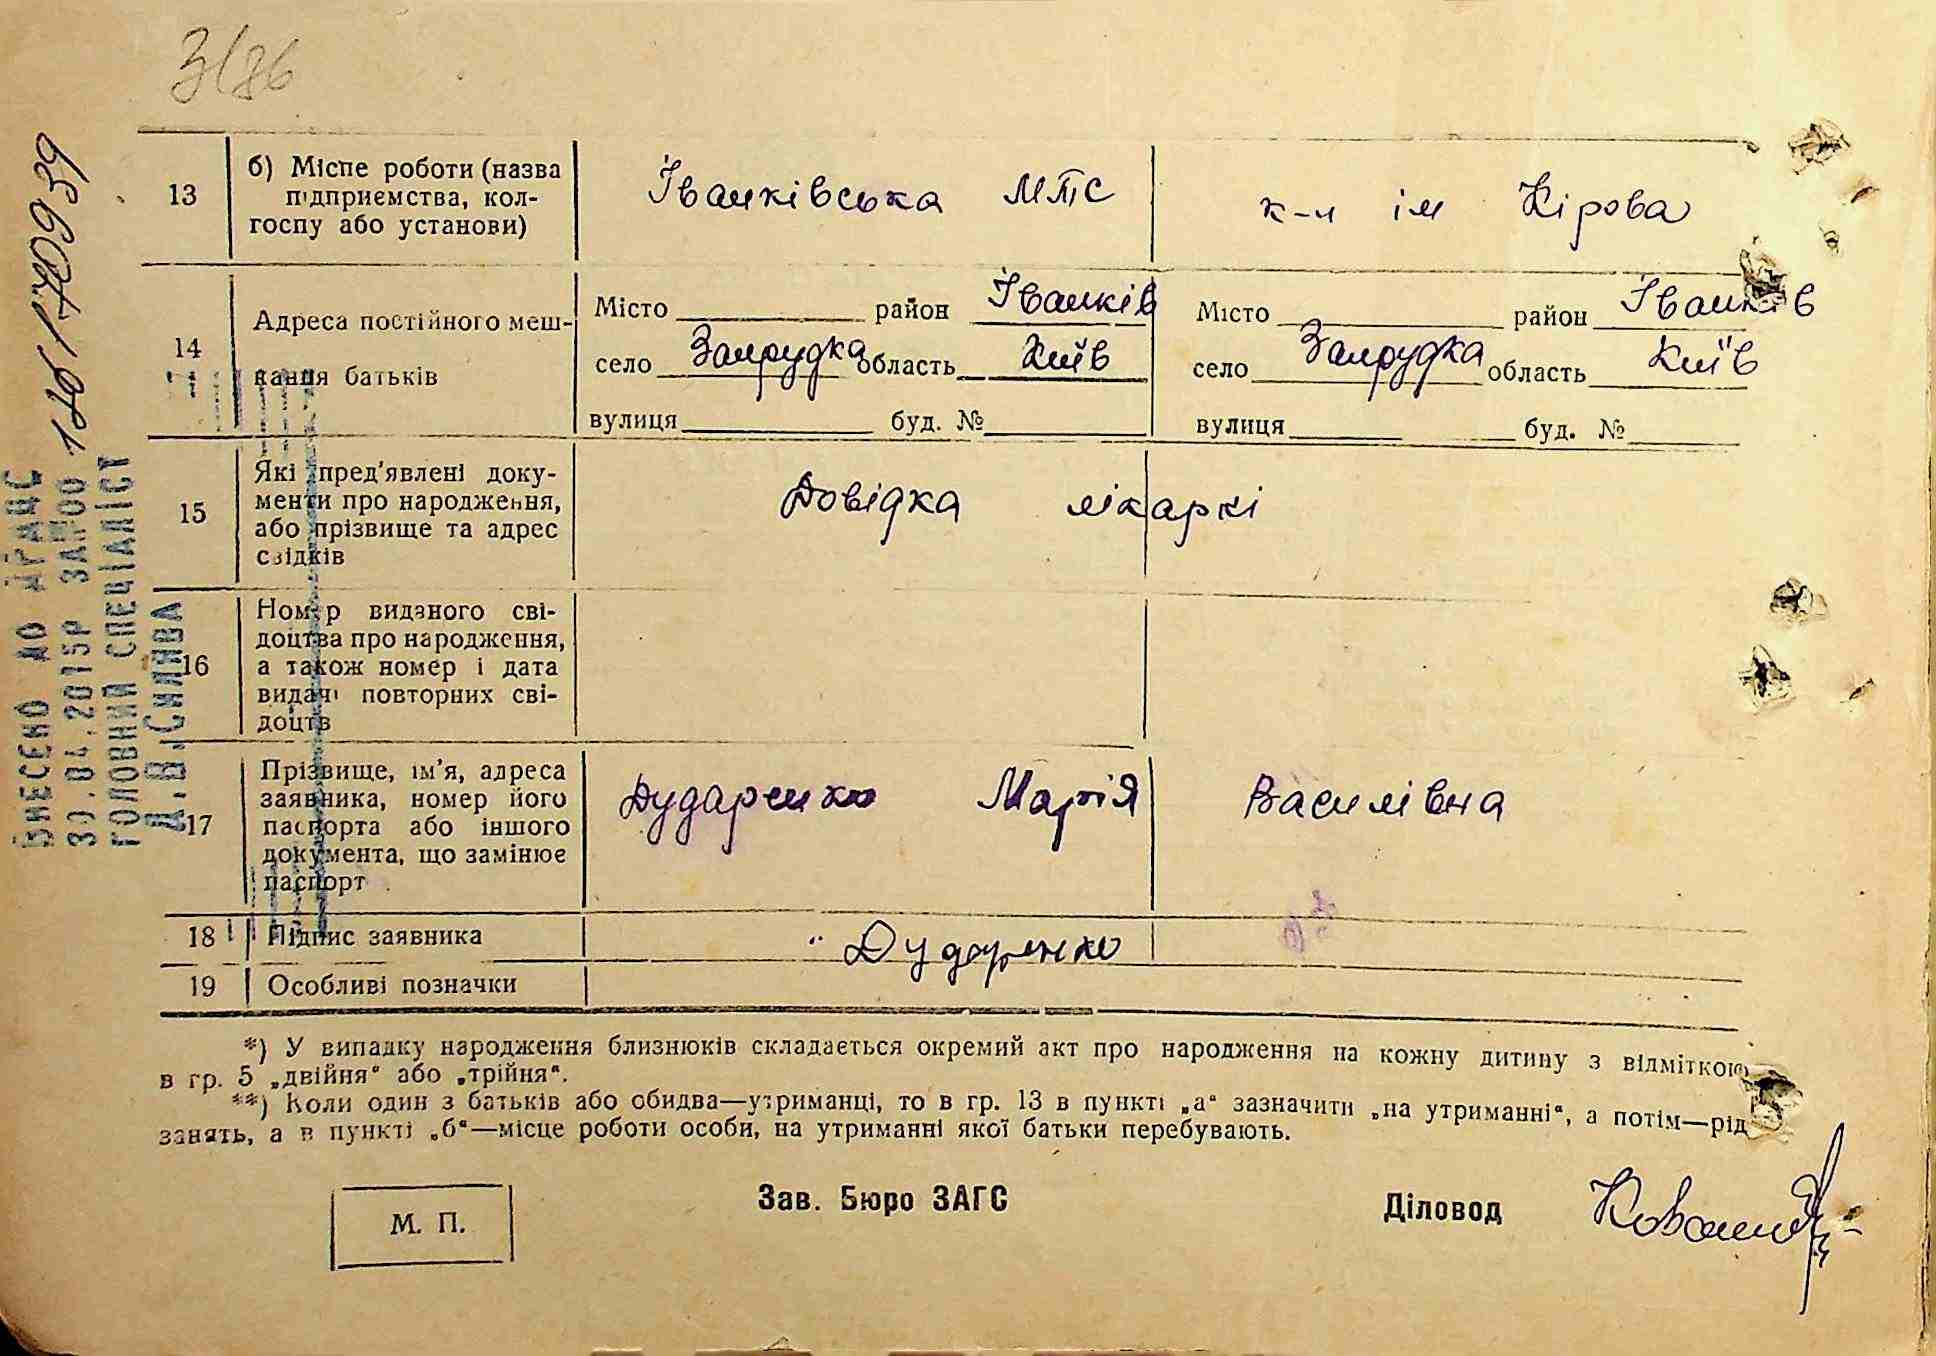 3/86
13 б) Місце роботи (назва підприємства, колгоспу або установи) Іванківська МТС к-п ім Кірова
14 Адреса постійного меш-
кання батьків
Місто район Іванків
село Запрудка область Київ
вулиця буд. №
Місто район Іванків
село Запрудка область Київ
вулиця буд. №
15 Які пред'явлені доку-
менти про народження,
або прізвище та адрес
свідків
Довідка лікаркі
16 Номер виданого сві-
доцтва про народження,
а також номер і дата
видачі повторних сві-
доцтв
17 Прізвище, ім'я, адреса
заявника, номер його
паспорта або іншого
документа, що замінює
паспорт
Дударенко Марія Василівна
18 Підпис заявника Дударенко
19 Особливі позначки
*) У випадку народження близнюків складається окремий акт про народження на кожну дитину з відміткою
в гр. 5 „двійня" або „трійня".
**) Коли один з батьків або обидва—утриманці, то в гр. 13 в пункті „а" зазначити „на утриманні", а потім—рід
занять, а в пункті „б"—місце роботи особи, на утриманні якої батьки перебувають.
М. П.
Зав. Бюро ЗАГС
Діловод
ВНЕСЕНО ДО ДРАЦС
30.04.2015Р ЗА №00 116170939
ГОЛОВНИЙ СПЕЦІАЛІСТ